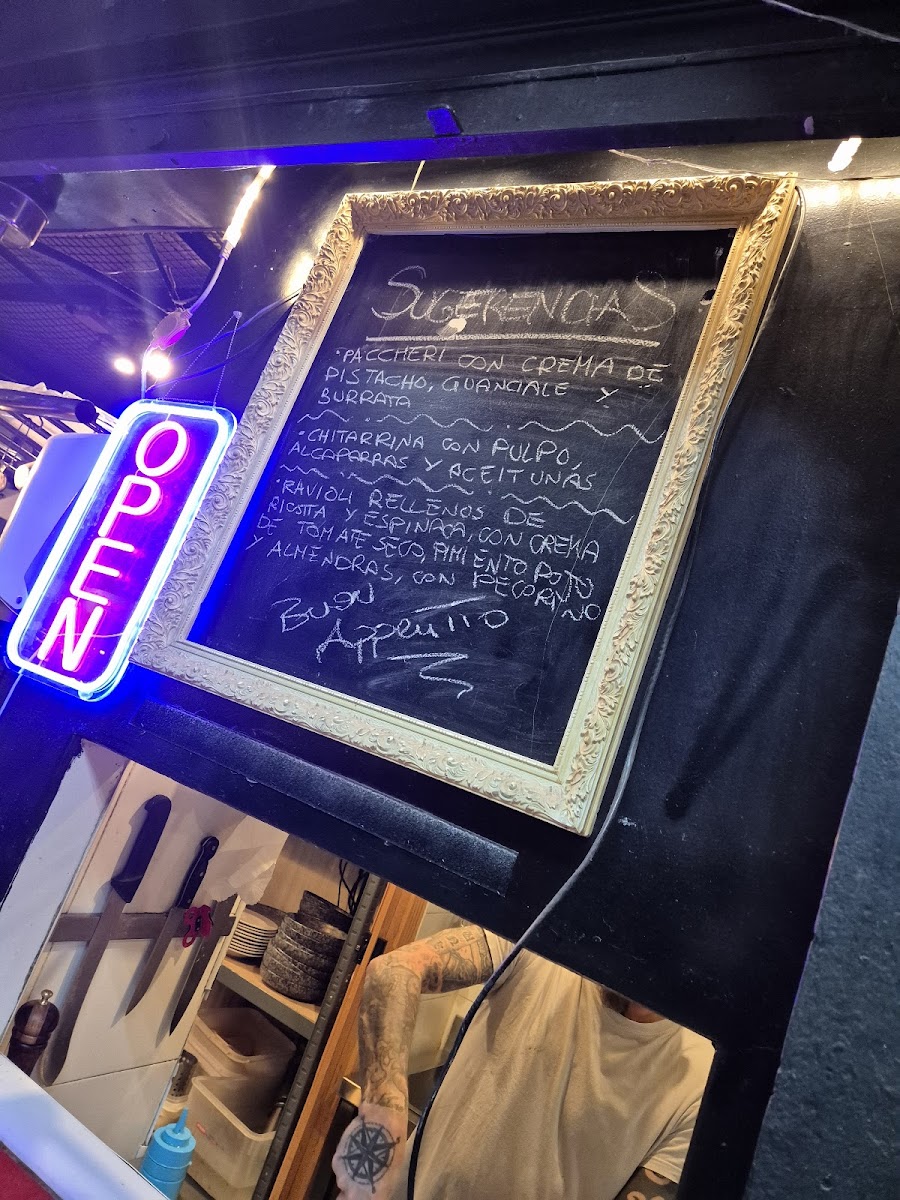 SUGERENCIAS
·PACCHERI CON CREMA DE
PISTACHO, GUANCIALE Y
BURRATA
·CHITARRINA CON PULPO,
ALCAPARRAS Y ACEITUNAS
·RAVIOLI RELLENOS DE
RICOTTA Y ESPINACA, CON CREMA
DE TOMATE SECO, PIMIENTO ROJO
Y ALMENDRAS, CON PECORINO
BUON
APPETITO
OPEN